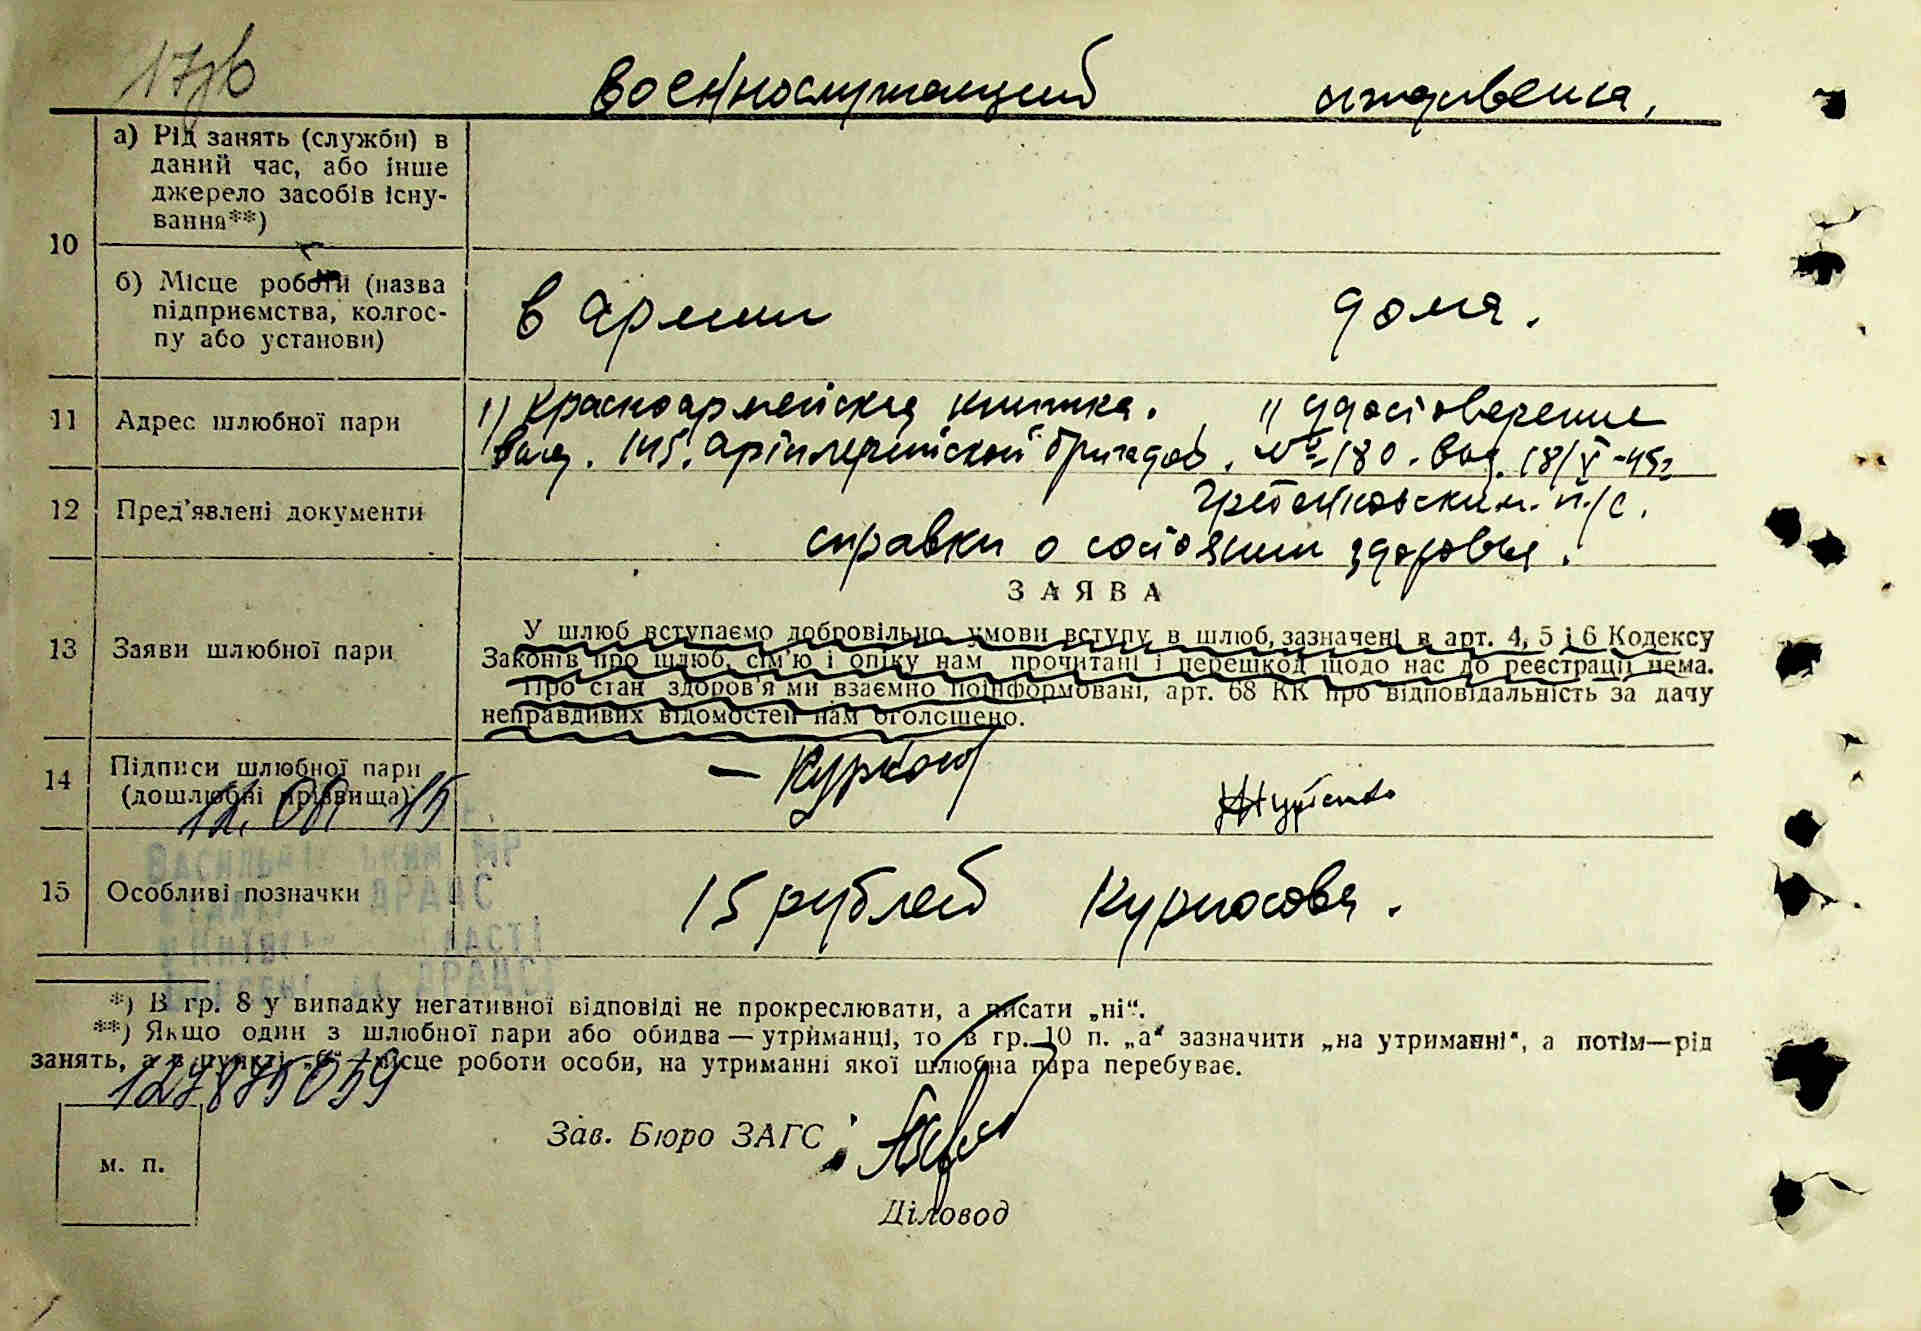 17зв
военнослужащий иждивенка.
10
а) Рід занять (служби) в
даний час, або інше
джерело засобів існу-
вання**)
б) Місце роботи (назва
підприємства, колгос-
пу або установи)
в армии дома.
11 Адрес шлюбної пари
1) Красноармейская книжка. 1) удостоверение
выд. 145. артиллерийской бригадой. № 180. выд. 18/V-45г
12 Пред'явлені документи
п/с.
справки о состоянии здоровья.
ЗАЯВА
13 Заяви шлюбної пари
У шлюб вступаємо добровільно, умови вступу в шлюб, зазначені в арт. 4, 5 і 6 Кодексу
Законів про шлюб, сім'ю і опіку нам прочитані і перешкод щодо нас до реєстрації нема.
Про стан здоров'я ми взаємно поінформовані, арт. 68 КК про відповідальність за дачу
неправдивих відомостей нам оголошено.
14 Підписи шлюбної пари
(дошлюбні прізвища)
15 Особливі позначки
15 рублей Курносова.
*) В гр. 8 у випадку негативної відповіді не прокреслювати, а писати „ні“.
**) Якщо один з шлюбної пари або обидва — утриманці, то в гр. 10 п. „а“ зазначити „на утриманні“, а потім—рід
занять, а в пункті „б“ місце роботи особи, на утриманні якої шлюбна пара перебуває.
Зав. Бюро ЗАГС
м. п.
Діловод